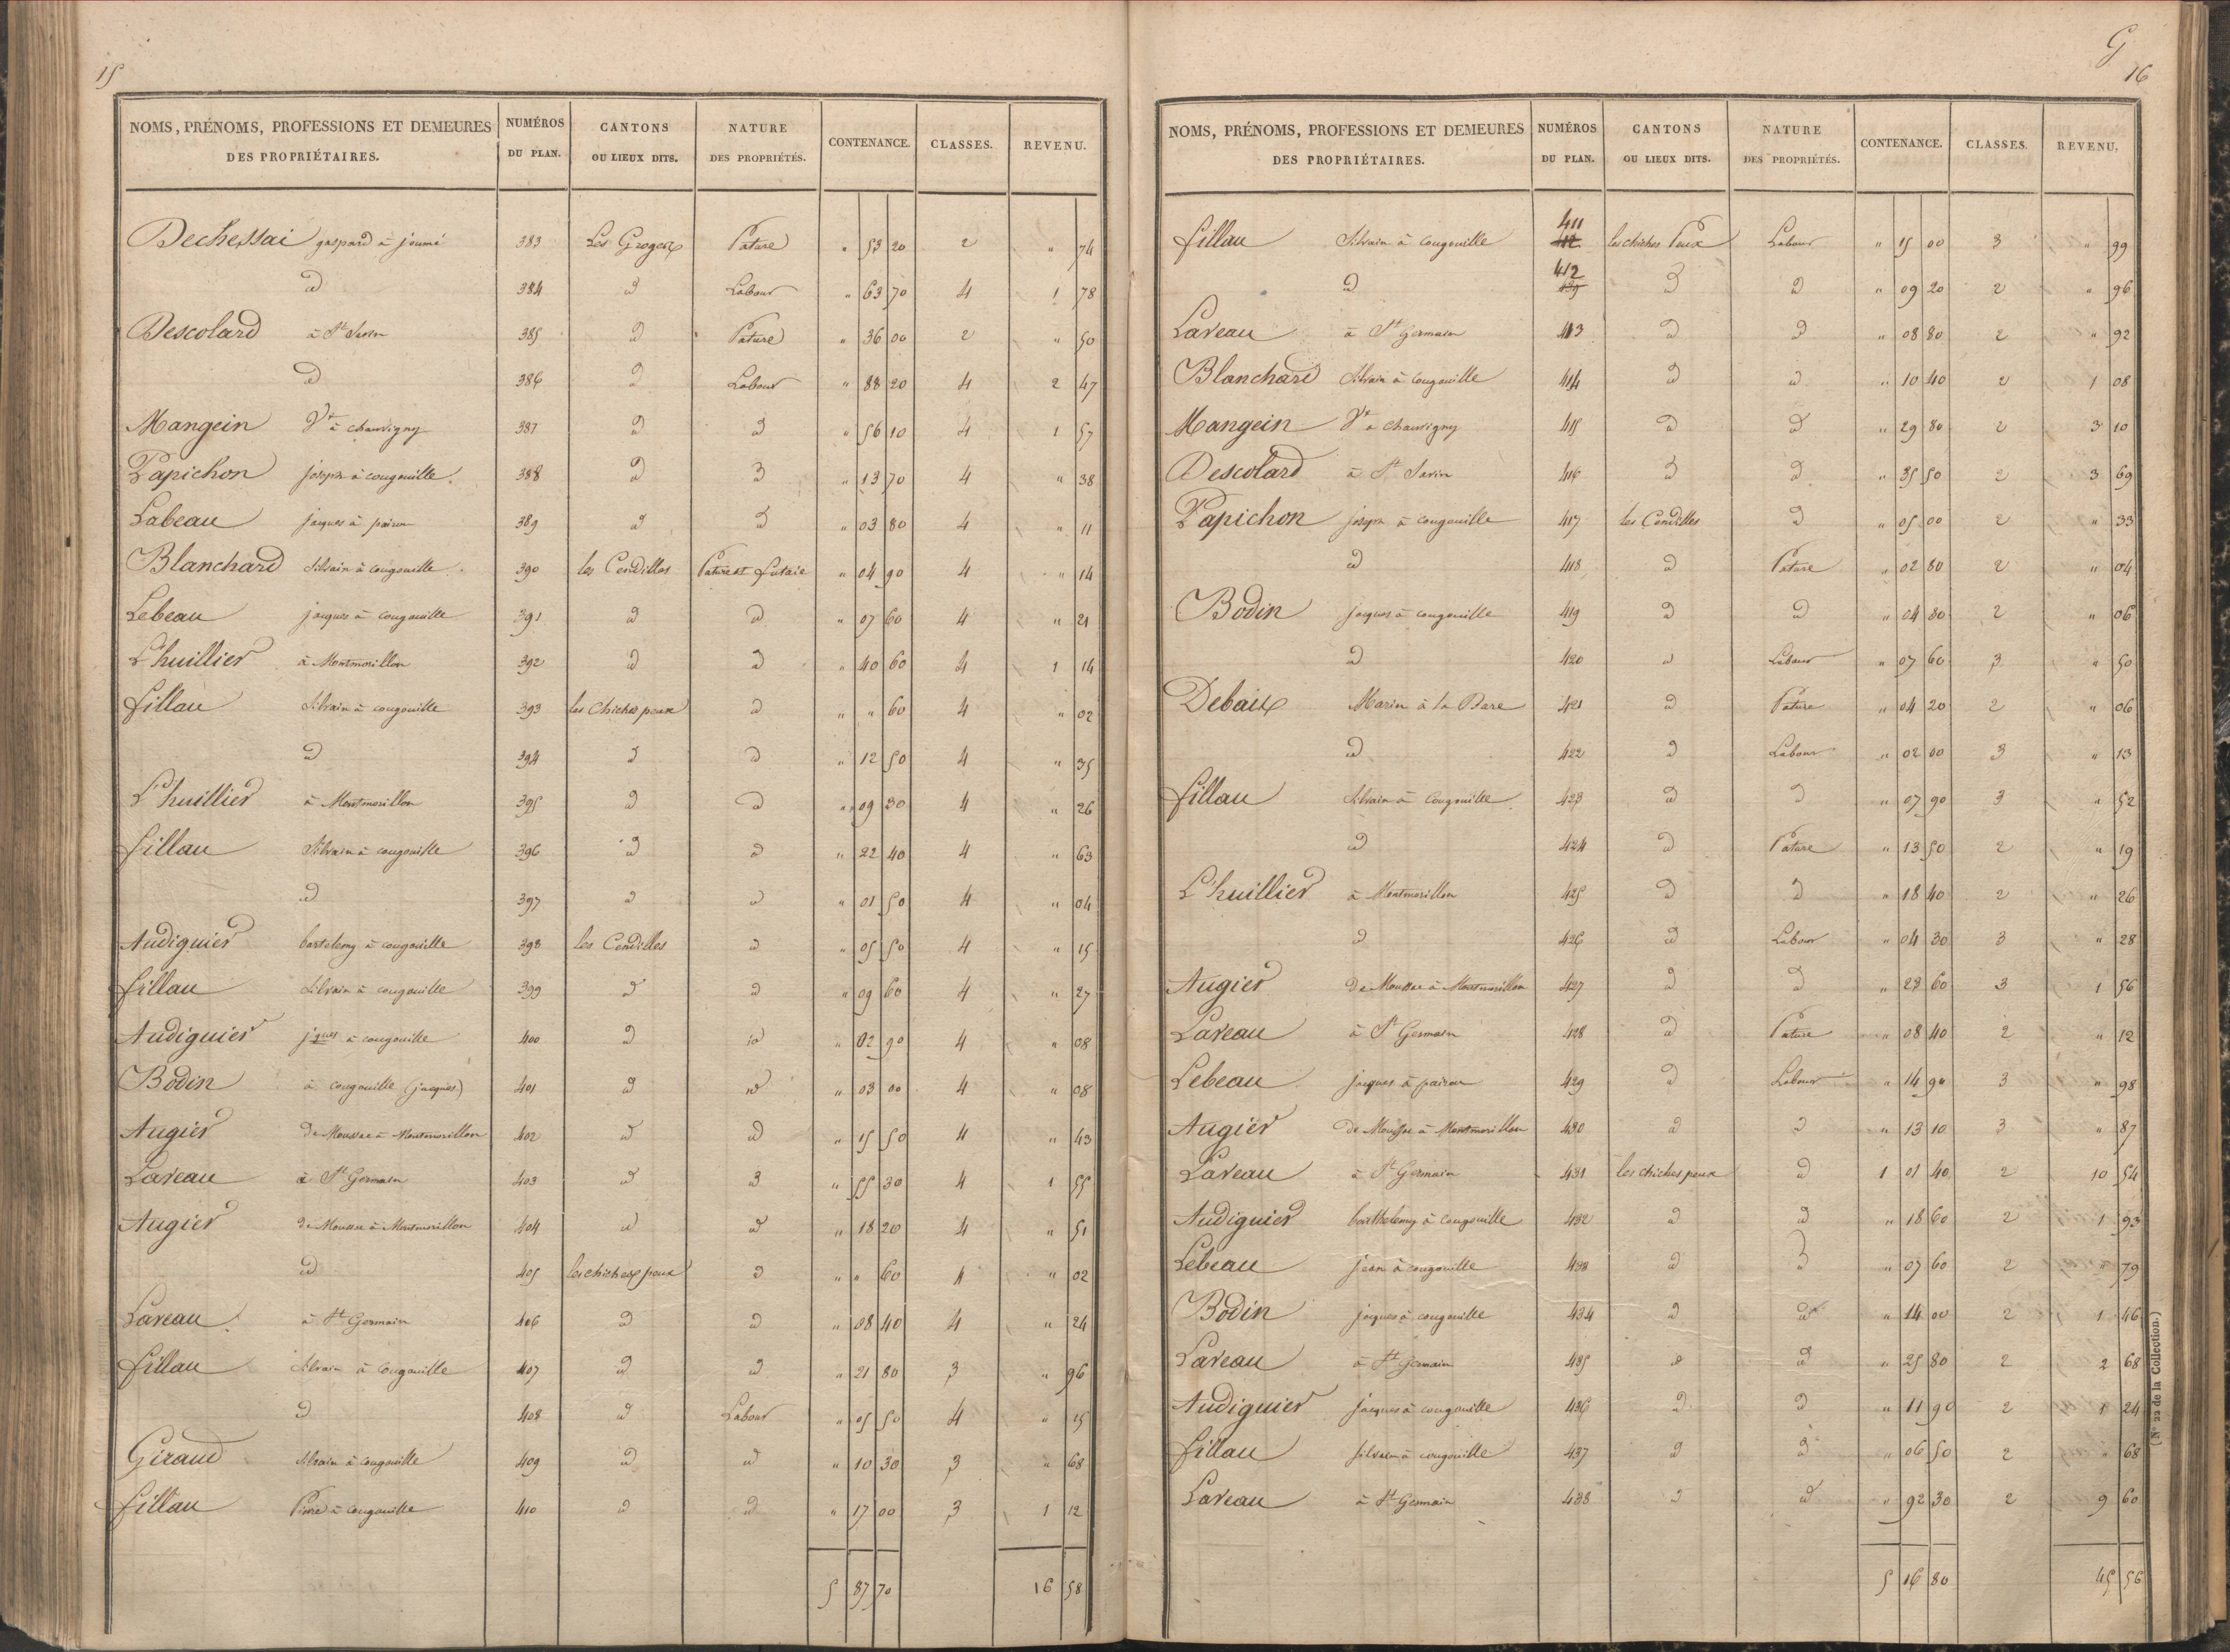 15
NOMS, PRÉNOMS, PROFESSIONS ET DEMEURES DES PROPRIÉTAIRES. NUMÉROS DU PLAN. CANTONS OU LIEUX DITS. NATURE DES PROPRIÉTÉS. CONTENANCE. CLASSES. REVENU.
Dechessai gaspard à joumé 383 Les Grogerx Pature " 53 20 2 " 74
d 384 d Labour " 63 70 4 1 78
Descolard à St Savin 385 d Pature " 36 00 2 " 50
d 386 d Labour " 88 20 4 2 47
Mangein Ve à chauvigny 387 d d " 56 10 4 1 57
Papichon joseph à cougouille 388 d d " 13 70 4 " 38
Labeau jaques à 389 d d " 03 80 4 " 11
Blanchard Silvain à cougouille 390 les Cendilles Pature et futaie " 04 90 4 " 14
Lebeau jaques à cougouille 391 d d " 07 60 4 " 21
L'huillier à Montmorillon 392 d d " 40 60 4 1 14
fillau Silvain à cougouille 393 les Chiches peux d " " 60 4 " 02
d 394 d d " 12 50 4 " 35
L'huillier à Montmorillon 395 d d " 09 30 4 " 26
fillau Silvain à cougouille 396 d d " 22 40 4 " 63
d 397 d d " 01 50 4 " 04
Audiguier bartelemy à cougouille 398 les Cendilles d " 05 50 4 " 15
fillau Silvain à cougouille 399 d d " 09 60 4 " 27
Audiguier jques à cougouille 400 d d " 02 90 4 " 08
Bodin à cougouille (jacques) 401 d d " 03 00 4 " 08
Augier de Moussac à Montmorillon 402 d d " 15 50 4 " 43
Laveau à St Germain 403 d d " 55 30 4 1 55
Augier de Moussac à Montmorillon 404 d d " 18 20 4 " 51
d 405 les chiches peux d " " 60 4 " 02
Laveau à St Germain 406 d d " 08 40 4 " 24
fillau Silvain à Cougouille 407 d d " 21 80 3 " 96
d 408 d Labour " 05 50 4 " 15
Giraud Silvain à Cougouille 409 d d " 10 30 3 " 68
fillau Pierre à Cougouille 410 d d " 17 00 3 1 12
5 87 70 16 58
G
16
NOMS, PRÉNOMS, PROFESSIONS ET DEMEURES DES PROPRIÉTAIRES. NUMÉROS DU PLAN. CANTONS OU LIEUX DITS. NATURE DES PROPRIÉTÉS. CONTENANCE. CLASSES. REVENU.
fillau Silvain à Cougouille 411 les chiches Peux Labour " 15 00 3 " 99
d 412 d d " 09 20 2 " 96
Laveau à St Germain 413 d d " 08 80 2 " 92
Blanchard Silvain à Cougouille 414 d d " 10 40 2 1 08
Mangein Ve à chauvigny 415 d d " 29 80 2 3 10
Descolard à St Savin 416 d d " 35 50 2 3 69
Papichon joseph à Cougouille 417 les Cendilles d " 05 00 2 " 33
d 418 d Pature " 02 80 2 " 04
Bodin jaques à cougouille 419 d d " 04 80 2 " 06
d 420 d Labour " 07 60 3 " 50
Debaix Marin à la Bare 421 d Pature " 04 20 2 " 06
d 422 d Labour " 02 00 3 " 13
fillau Silvain à Cougouille 423 d d " 07 90 3 " 52
d 424 d Pature " 13 50 2 " 19
L'huillier à Montmorillon 425 d d " 18 40 2 " 26
d 426 d Labour " 04 30 3 " 28
Augier de Moussac à Montmorillon 427 d d " 23 60 3 1 56
Laveau à St Germain 428 d Pature " 08 40 2 " 12
Lebeau jaques à 429 d Labour " 14 90 3 " 98
Augier de Moussac à Montmorillon 430 d d " 13 10 3 " 87
Laveau à St Germain 431 les chiches peux d 1 01 40 2 10 54
Audiguier barthelemy à Cougouille 432 d d " 18 60 2 1 93
Lebeau jean à cougouille 433 d d " 07 60 2 " 79
Bodin jaques à cougouille 434 d d " 14 00 2 1 46
Laveau à St Germain 435 d d " 25 80 2 2 68
Audiguier jacques à cougouille 436 d d " 11 90 2 1 24
fillau silvain à cougouille 437 d d " 06 50 2 " 68
Laveau à St Germain 438 d d " 92 30 2 9 60
5 16 80 45 56
(No 22 de la Collection.)